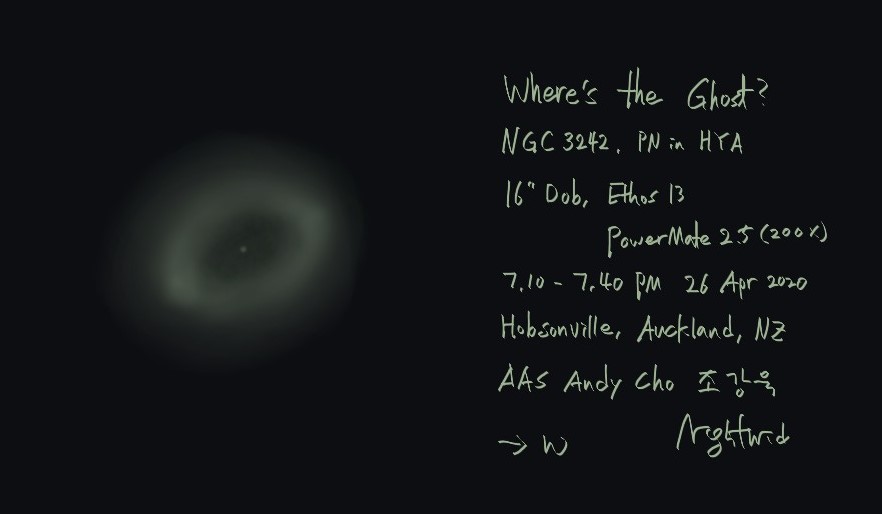 Where's the Ghost?
NGC 3242, PN in HYA
16" Dob, Ethos 13
PowerMate 2.5 (200X)
7.10 - 7.40 PM 26 Apr 2020
Hobsonville, Auckland, NZ
AAS Andy Cho 조강욱
→ W Nightwid